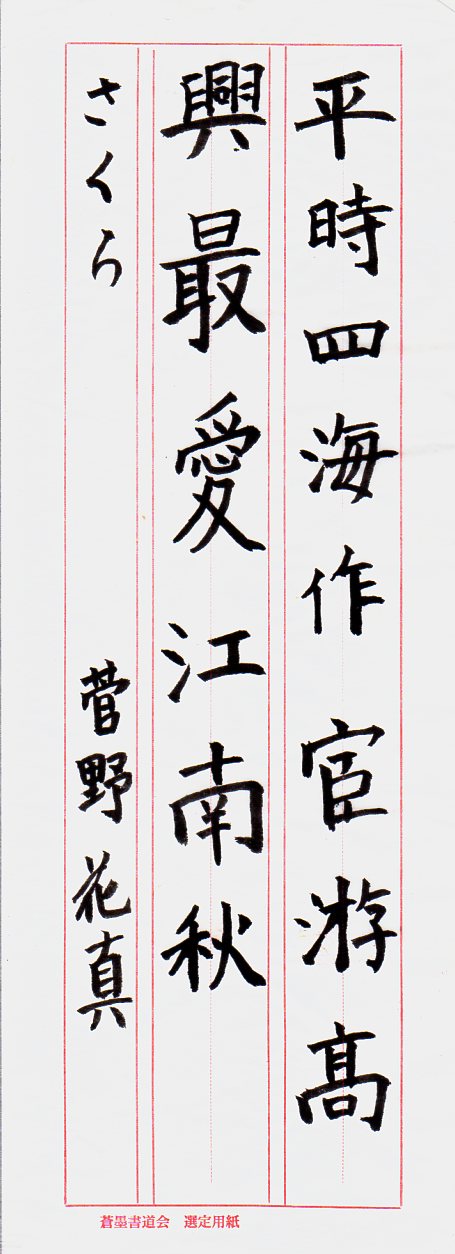 平時四海作宦游髙
興最愛江南秋
さくら 菅野花真
蒼墨書道会 選定用紙